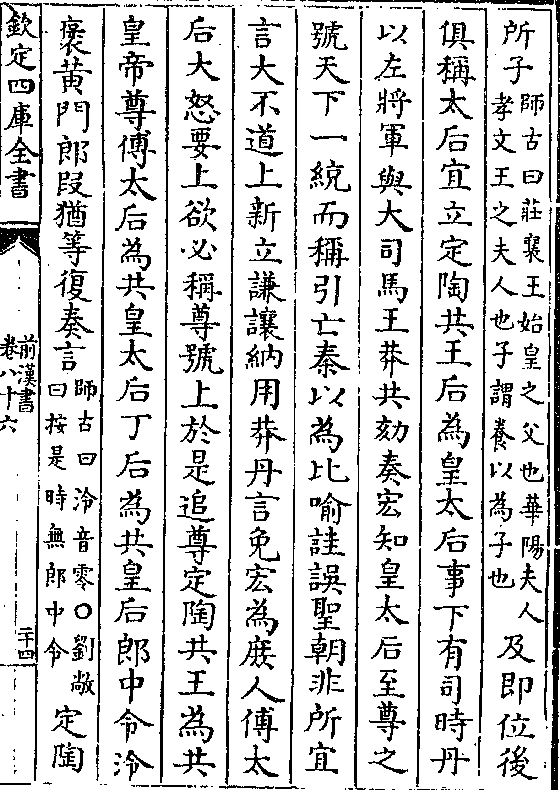 所子師古曰莊襄王始皇之父也華陽夫人孝文王之夫人也子謂養以為子也及即位後
俱稱太后宜立定陶共王后為皇太后事下有司時丹
以左將軍與大司馬王莽共劾奏宏知皇太后至尊之
號天下一統而稱引亡秦以為比喻詿誤聖朝非所宜
言大不道上新立謙讓納用莽丹言免宏為庻人傅太
后大怒要上欲必稱尊號上於是追尊定陶共王為共
皇帝尊傅太后為共皇太后丁后為共皇后郎中令泠
褒黄門郎段猶等復奏言師古曰泠音零○劉敞曰按是時無郎中令定陶
欽定四庫全書
前漢書
卷八十六
二十四